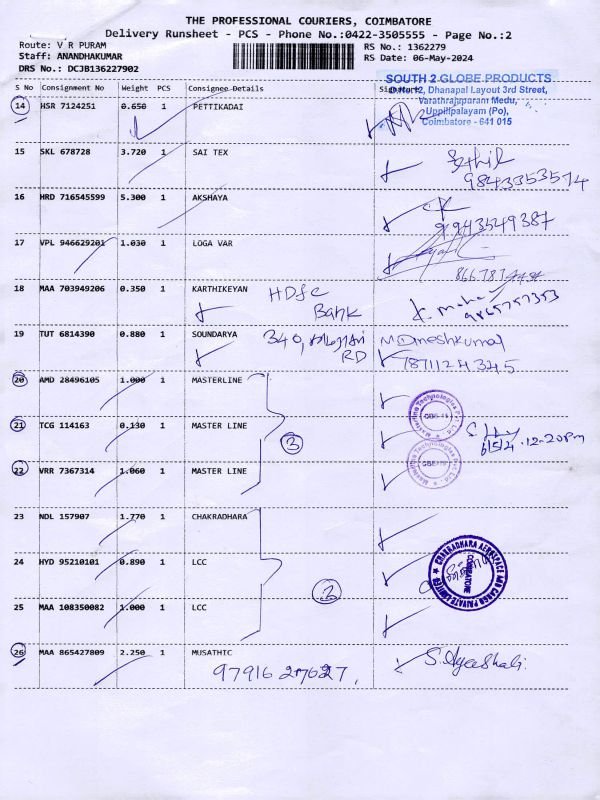 THE PROFESSIONAL COURIERS, COIMBATORE
Delivery Runsheet - PCS - Phone No.:0422-3505555 - Page No.:2
Route: V R PURAM
Staff: ANANDHAKUMAR
DRS No.: DCJB136227902
RS No.: 1362279
RS Date: 06-May-2024
S No Consignment No Weight PCS Consignee Details
SOUTH 2 GLOBE PRODUCTS
Dhanapal Layout 3rd Street,
Varathrajapuram Medu,
Uppilipalayam (Po),
Coimbatore - 641 015
14 HSR 7124251 0.650 1 PETTIKADAI
15 SKL 678728 3.720 1 SAI TEX
9843353574
16 HRD 716545599 5.300 1 AKSHAYA
9943549387
17 VPL 946629201 1.030 1 LOGA VAR
18 MAA 703949206 0.350 1 KARTHIKEYAN HDFC Bank
9865757353
19 TUT 6814390 0.880 1 SOUNDARYA 340, RD
7871124345
20 AMD 28496105 1.000 1 MASTERLINE
21 TCG 114163 0.130 1 MASTER LINE 3
12-20pm
22 VRR 7367314 1.060 1 MASTER LINE
23 NDL 157907 1.770 1 CHAKRADHARA
24 HYD 95210101 0.890 1 LCC
CHAKRADHARA AEROSPACE AND CARGO PRIVATE LIMITED
25 MAA 108350082 1.000 1 LCC
26 MAA 865427809 2.250 1 MUSATHIC
97916 27627